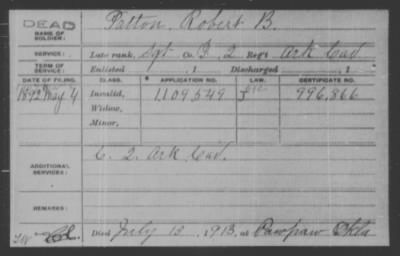 DEAD
NAME OF SOLDIER: Patton, Robert B.
SERVICE: Late rank, Sgt Co. B, 2 Reg't Ark Cav
TERM OF SERVICE: Enlisted , 1 Discharged , 1
DATE OF FILING. CLASS. APPLICATION NO. CERTIFICATE NO.
1892 May 4 Invalid, 1109549 996,866
Widow,
Minor,
ADDITIONAL SERVICES: C. 2. Ark Cav.
REMARKS:
Died July 13, 1913, at Pawpaw Okla